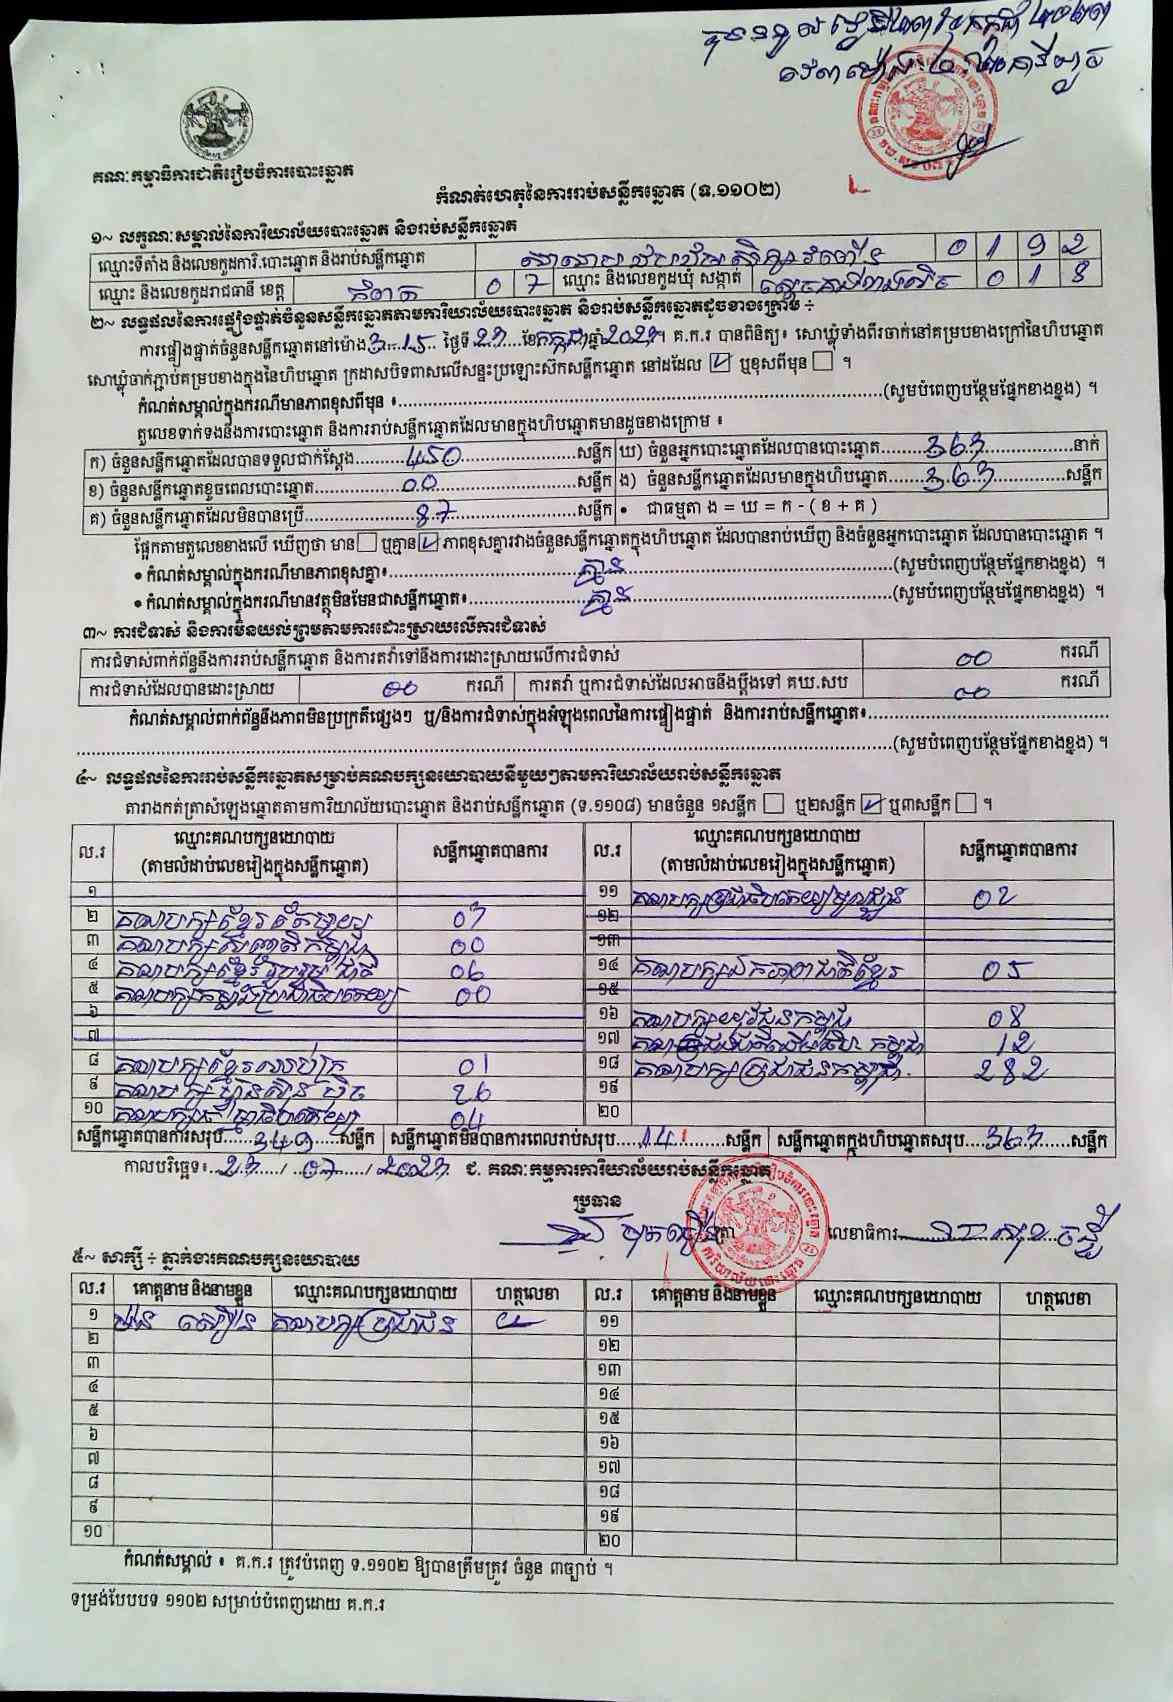 គណៈកម្មាធិការជាតិរៀបចំការបោះឆ្នោត
កំណត់ហេតុនៃការរាប់សន្លឹកឆ្នោត (ទ.១១០២)
១~ លក្ខណៈសម្គាល់នៃការិយាល័យបោះឆ្នោត និងរាប់សន្លឹកឆ្នោត
ឈ្មោះទីតាំង និងលេខកូដការិ.បោះឆ្នោត និងរាប់សន្លឹកឆ្នោត 0 1 9 2
ឈ្មោះ និងលេខកូដរាជធានី ខេត្ត កំពត 0 7 ឈ្មោះ និងលេខកូដឃុំ សង្កាត់ 0 1 8
២~ លទ្ធផលនៃការផ្ទៀងផ្ទាត់ចំនួនសន្លឹកឆ្នោតតាមការិយាល័យបោះឆ្នោត និងរាប់សន្លឹកឆ្នោតដូចខាងក្រោម ÷
ការផ្ទៀងផ្ទាត់ចំនួនសន្លឹកឆ្នោតនៅម៉ោង 3:15 ថ្ងៃទី 23 ខែ កក្កដា ឆ្នាំ 2023 ។ គ.ក.រ បានពិនិត្យ៖ សោឃ្លុំទាំងពីរចាក់នៅគម្របខាងក្រៅនៃហិបឆ្នោត
សោឃ្លុំចាក់ភ្ជាប់គម្របខាងក្នុងនៃហិបឆ្នោត ក្រដាសបិទពាសលើសន្ទះប្រឡោះស៊កសន្លឹកឆ្នោត នៅដដែល ☑ ឬខុសពីមុន ☐ ។
កំណត់សម្គាល់ក្នុងករណីមានភាពខុសពីមុន ៖ (សូមបំពេញបន្ថែមផ្នែកខាងខ្នង) ។
តួលេខទាក់ទងនឹងការបោះឆ្នោត និងការរាប់សន្លឹកឆ្នោតដែលមានក្នុងហិបឆ្នោតមានដូចខាងក្រោម ៖
ក) ចំនួនសន្លឹកឆ្នោតដែលបានទទួលជាក់ស្ដែង 450 សន្លឹក ឃ) ចំនួនអ្នកបោះឆ្នោតដែលបានបោះឆ្នោត 363 នាក់
ខ) ចំនួនសន្លឹកឆ្នោតខូចពេលបោះឆ្នោត 00 សន្លឹក ង) ចំនួនសន្លឹកឆ្នោតដែលមានក្នុងហិបឆ្នោត 363 សន្លឹក
គ) ចំនួនសន្លឹកឆ្នោតដែលមិនបានប្រើ 87 សន្លឹក • ជាធម្មតា ង = ឃ = ក - ( ខ + គ )
ផ្អែកតាមតួលេខខាងលើ ឃើញថា មាន ☐ ឬគ្មាន ☑ ភាពខុសគ្នារវាងចំនួនសន្លឹកឆ្នោតក្នុងហិបឆ្នោត ដែលបានរាប់ឃើញ និងចំនួនអ្នកបោះឆ្នោត ដែលបានបោះឆ្នោត ។
• កំណត់សម្គាល់ក្នុងករណីមានភាពខុសគ្នា៖ គ្មាន (សូមបំពេញបន្ថែមផ្នែកខាងខ្នង) ។
• កំណត់សម្គាល់ក្នុងករណីមានវត្ថុមិនមែនជាសន្លឹកឆ្នោត៖ គ្មាន (សូមបំពេញបន្ថែមផ្នែកខាងខ្នង) ។
៣~ ការជំទាស់ និងការមិនយល់ព្រមតាមការដោះស្រាយលើការជំទាស់
ការជំទាស់ពាក់ព័ន្ធនឹងការរាប់សន្លឹកឆ្នោត និងការតវ៉ាទៅនឹងការដោះស្រាយលើការជំទាស់ 00 ករណី
ការជំទាស់ដែលបានដោះស្រាយ 00 ករណី ការតវ៉ា ឬការជំទាស់ដែលអាចនឹងប្ដឹងទៅ គឃ.សប 00 ករណី
កំណត់សម្គាល់ពាក់ព័ន្ធនឹងភាពមិនប្រក្រតីផ្សេងៗ ឬ/និងការជំទាស់ក្នុងអំឡុងពេលនៃការផ្ទៀងផ្ទាត់ និងការរាប់សន្លឹកឆ្នោត៖
(សូមបំពេញបន្ថែមផ្នែកខាងខ្នង) ។
៤~ លទ្ធផលនៃការរាប់សន្លឹកឆ្នោតសម្រាប់គណបក្សនយោបាយនីមួយៗតាមការិយាល័យរាប់សន្លឹកឆ្នោត
តារាងកត់ត្រាសំឡេងឆ្នោតតាមការិយាល័យបោះឆ្នោត និងរាប់សន្លឹកឆ្នោត (ទ.១១០៨) មានចំនួន ១សន្លឹក ☐ ឬ២សន្លឹក ☑ ឬ៣សន្លឹក ☐ ។
ល.រ ឈ្មោះគណបក្សនយោបាយ (តាមលំដាប់លេខរៀងក្នុងសន្លឹកឆ្នោត) សន្លឹកឆ្នោតបានការ ល.រ ឈ្មោះគណបក្សនយោបាយ (តាមលំដាប់លេខរៀងក្នុងសន្លឹកឆ្នោត) សន្លឹកឆ្នោតបានការ
១ ១១ គណបក្សប្រជាធិបតេយ្យមូលដ្ឋាន 02
២ គណបក្សខ្មែរតែមួយ 03 ១២
៣ គណបក្ស កម្ពុជា 00 ១៣
៤ គណបក្សខ្មែររួបរួមជាតិ 06 ១៤ គណបក្សឯកភាពជាតិខ្មែរ 05
៥ គណបក្សកម្លាំងប្រជាធិបតេយ្យ 00 ១៥
៦ ១៦ គណបក្សយុវជនកម្ពុជា 08
៧ ១៧ 12
៨ គណបក្សខ្មែរ 01 ១៨ គណបក្សប្រជាជនកម្ពុជា 282
៩ គណបក្ស 26 ១៩
១០ គណបក្ស 04 ២០
សន្លឹកឆ្នោតបានការសរុប 349 សន្លឹក សន្លឹកឆ្នោតមិនបានការពេលរាប់សរុប 14 សន្លឹក សន្លឹកឆ្នោតក្នុងហិបឆ្នោតសរុប 363 សន្លឹក
កាលបរិច្ឆេទ៖ 23 / 07 / 2023 ជ. គណៈកម្មការការិយាល័យរាប់សន្លឹកឆ្នោត
ប្រធាន
លេខាធិការ
៥~ សាក្សី ÷ ភ្នាក់ងារគណបក្សនយោបាយ
ល.រ គោត្តនាម និងនាមខ្លួន ឈ្មោះគណបក្សនយោបាយ ហត្ថលេខា ល.រ គោត្តនាម និងនាមខ្លួន ឈ្មោះគណបក្សនយោបាយ ហត្ថលេខា
១ គណបក្សប្រជាជន ១១
២ ១២
៣ ១៣
៤ ១៤
៥ ១៥
៦ ១៦
៧ ១៧
៨ ១៨
៩ ១៩
១០ ២០
កំណត់សម្គាល់ ៖ គ.ក.រ ត្រូវបំពេញ ទ.១១០២ ឱ្យបានត្រឹមត្រូវ ចំនួន ៣ច្បាប់ ។
ទម្រង់បែបបទ ១១០២ សម្រាប់បំពេញដោយ គ.ក.រ